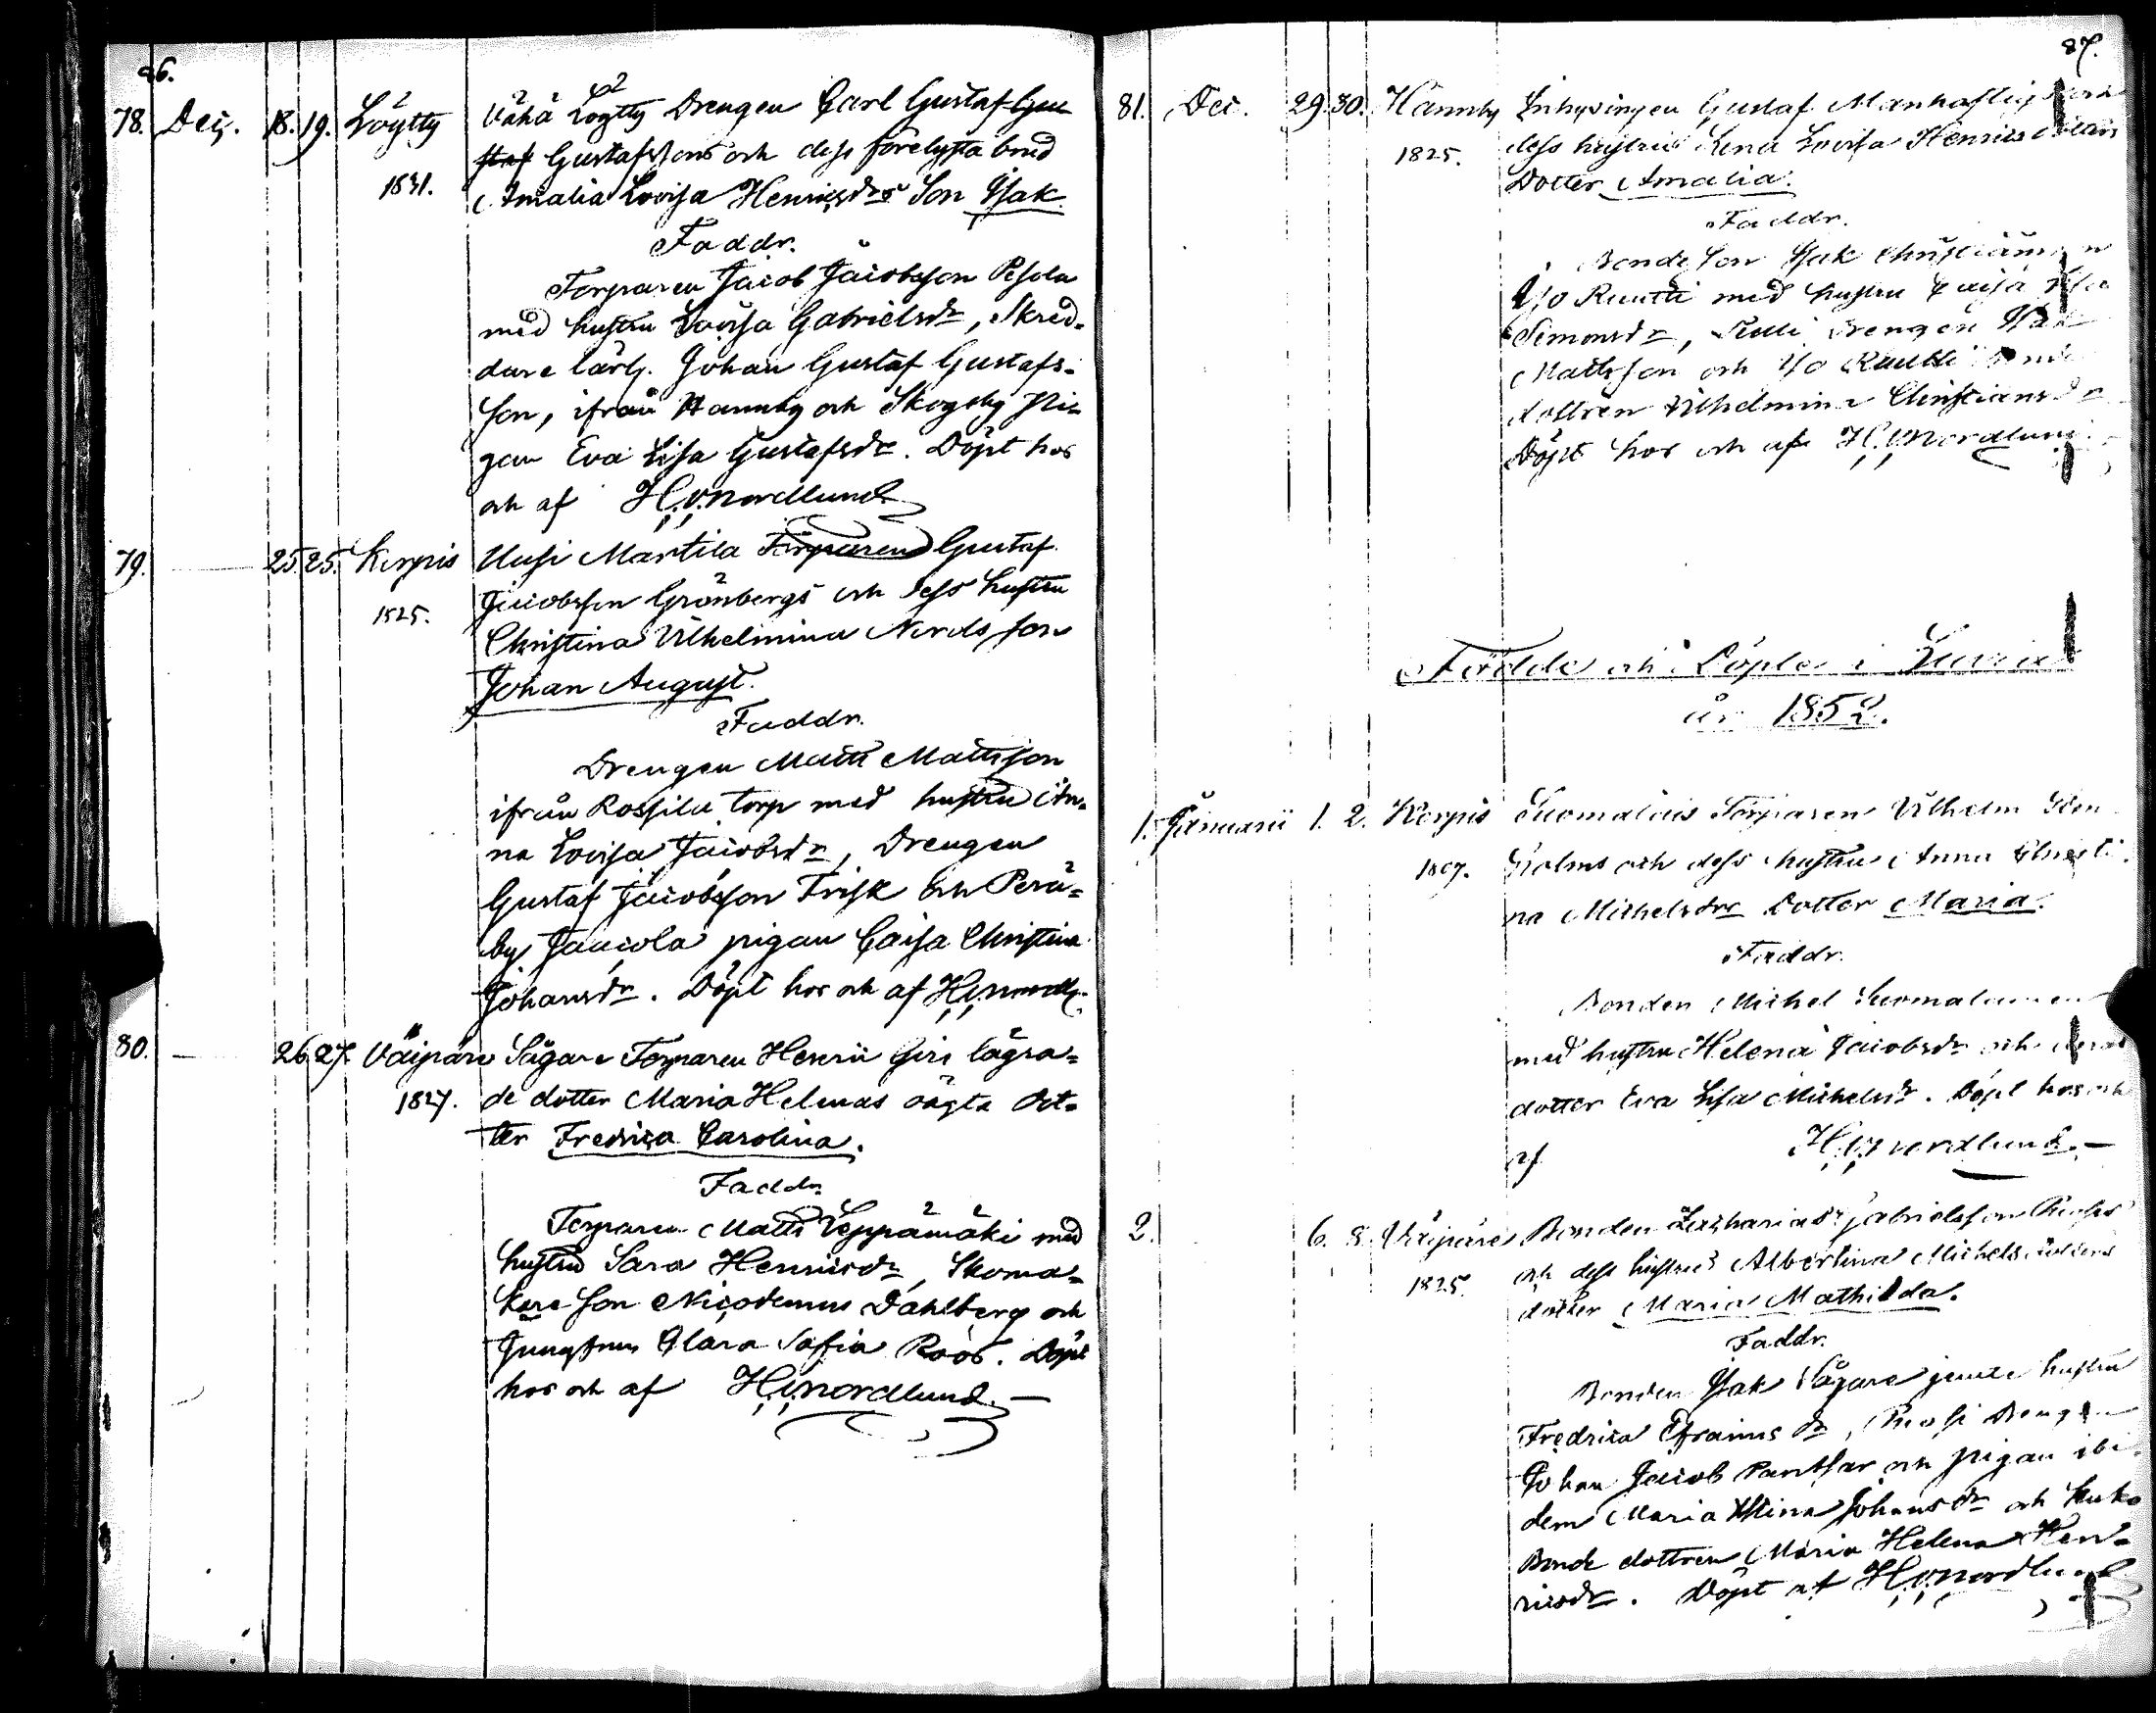 86.
78. Dec. 18. 19. Löytty Vähä Löytty Drengen Carl Gustaf Gu
staf Gustafssons och dess förelysta brud
1831. Amalia Lovisa Henricsdrs Son Isak.
Faddr.
Torparen Jacob Jacobsson Pesola
med hustru Lovisa Gabrielsdr, Skred-
dare lärl. Johan Gustaf Gustafs-
son, ifrån Hannby och Skogsby pi-
gan Eva Lisa Gustafsdr. Döpt hos
och af H.V. Nordlund
79. 25. 25. Korpis Uusi Martila Torparen Gustaf
Jacobsson Grönbergs och dess hustru
1825.
Christina Vilhelmina Nords son
Johan August.
Faddr.
Drengen Matts Mattsson
ifrån Rossila torp med hustru An-
na Lovisa Jacobsdr, Drengen
Gustaf Jacobsson Frisk och Perä-
by Jaacola pigan Caisa Christina
Johansdr. Döpt hos och af H.V. Nordl.
80. 26. 27. Väipäre Sågare Torparen Henric Giri lägra-
1827. de dotter Maria Helenas oägta dot-
ter Fredrica Carolina.
Faddr.
Torparen Matts Leppämäki med
hustru Sara Henricsdr, Skoma-
kare son Nicodemus Dahlberg och
Jungfrun Clara Sofia Roos. Döpt
hos och af H.V. Nordlund.
87.
81. Dec. 29. 30. Hannby Inhysingen Gustaf Manhaftig och
1825. dess hustru Lena Lovisa Henrics
Dotter Amalia.
Faddr.
Bonde Son Isak
Y/o Ruutti med hustru Caisa
Simonsdr, Drengen
Mattsson och Y/o Ruutti
dottren Vilhelmina Christiansdr
Döpt hos och af H.V. Nordlund
Födde och Döpte i Luvia
år 1852.
1. Januarii 1. 2. Korpis Suomalais Torparen Vilhelm
1807. och dess hustru Anna Christi-
na Michelsdrs Dotter Maria.
Faddr.
Bonden Michel Suomalainen
med hustru Helena Jacobsdr och deras
dotter Eva Lisa Michelsdr. Döpt hos och
af H.V. Nordlund.
2. 6. 8. Väipäre Bonden Zacharias Gabrielsson
1825. och dess hustru Albertina Michels dotters
dotter Maria Mathilda.
Faddr.
Bonden Isak Sågare jemte hustru
Fredrica Efraimsdr, Drengen
Johan Jacob Panthar och pigan ibi-
dem Maria Stina Johansdr och
Bonde dottren Maria Helena Hen-
ricsdr. Döpt af H.V. Nordlund